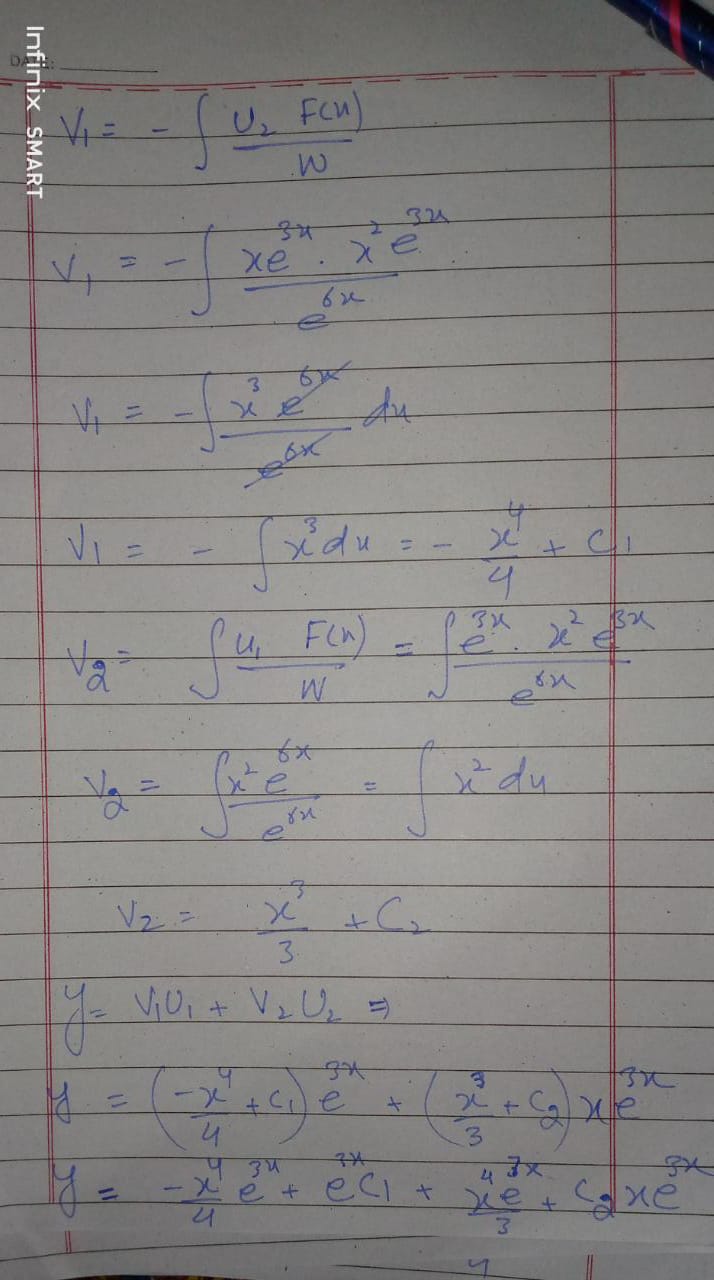 Infinix SMART
DATE:
V₁ = - ∫ U₂ F(x) / W
V₁ = - ∫ xe^3x . x² e^3x / e^6x
V₁ = - ∫ x³ e^6x / e^6x dx
V₁ = - ∫ x³ dx = - x⁴/4 + C₁
V₂ = ∫ U₁ F(x) / W = ∫ e^3x . x² e^3x / e^6x
V₂ = ∫ x² e^6x / e^6x = ∫ x² dx
V₂ = x³/3 + C₂
y = V₁U₁ + V₂U₂ ⇒
y = (-x⁴/4 + C₁) e^3x + (x³/3 + C₂) x e^3x
y = -x⁴/4 e^3x + e^3x C₁ + x⁴e^3x/3 + C₂ x e^3x